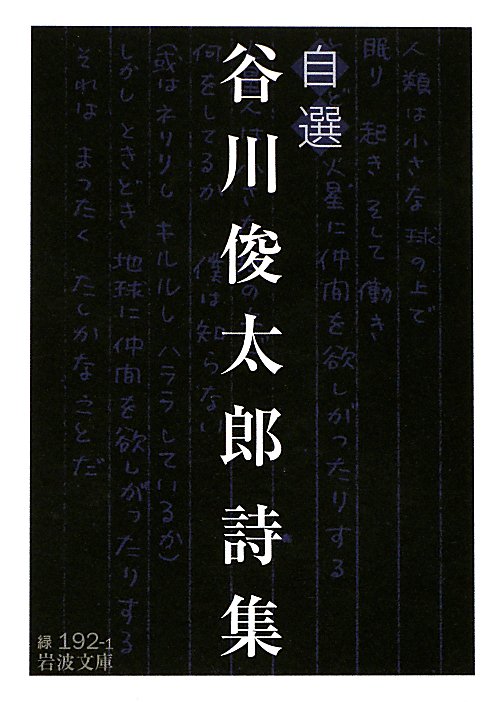 自選
谷川俊太郎詩集
人類は小さな球の上で
眠り 起き そして働き
火星に仲間を欲しがったりする
何をしてるか 僕は知らない
(或はネリリし キルルし ハララしているか)
しかしときどき地球に仲間を欲しがったりする
それはまったくたしかなことだ
緑 192-1
岩波文庫